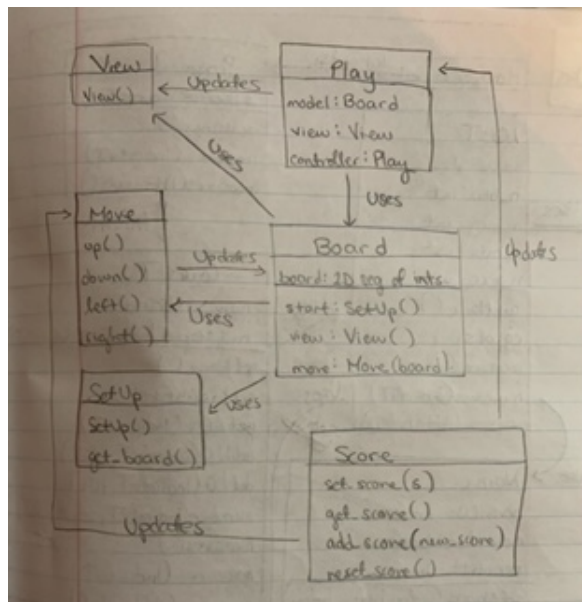 View
View()
Updates
Play
model: Board
view: View
controller: Play
Uses
Uses
Updates
Move
up()
down()
left()
right()
Updates
Uses
Board
board: 2D seq of ints
start: SetUp()
view: View()
move: Move(board)
Uses
SetUp
SetUp()
get_board()
Score
set_score(s)
get_score()
add_score(new_score)
reset_score()
Updates